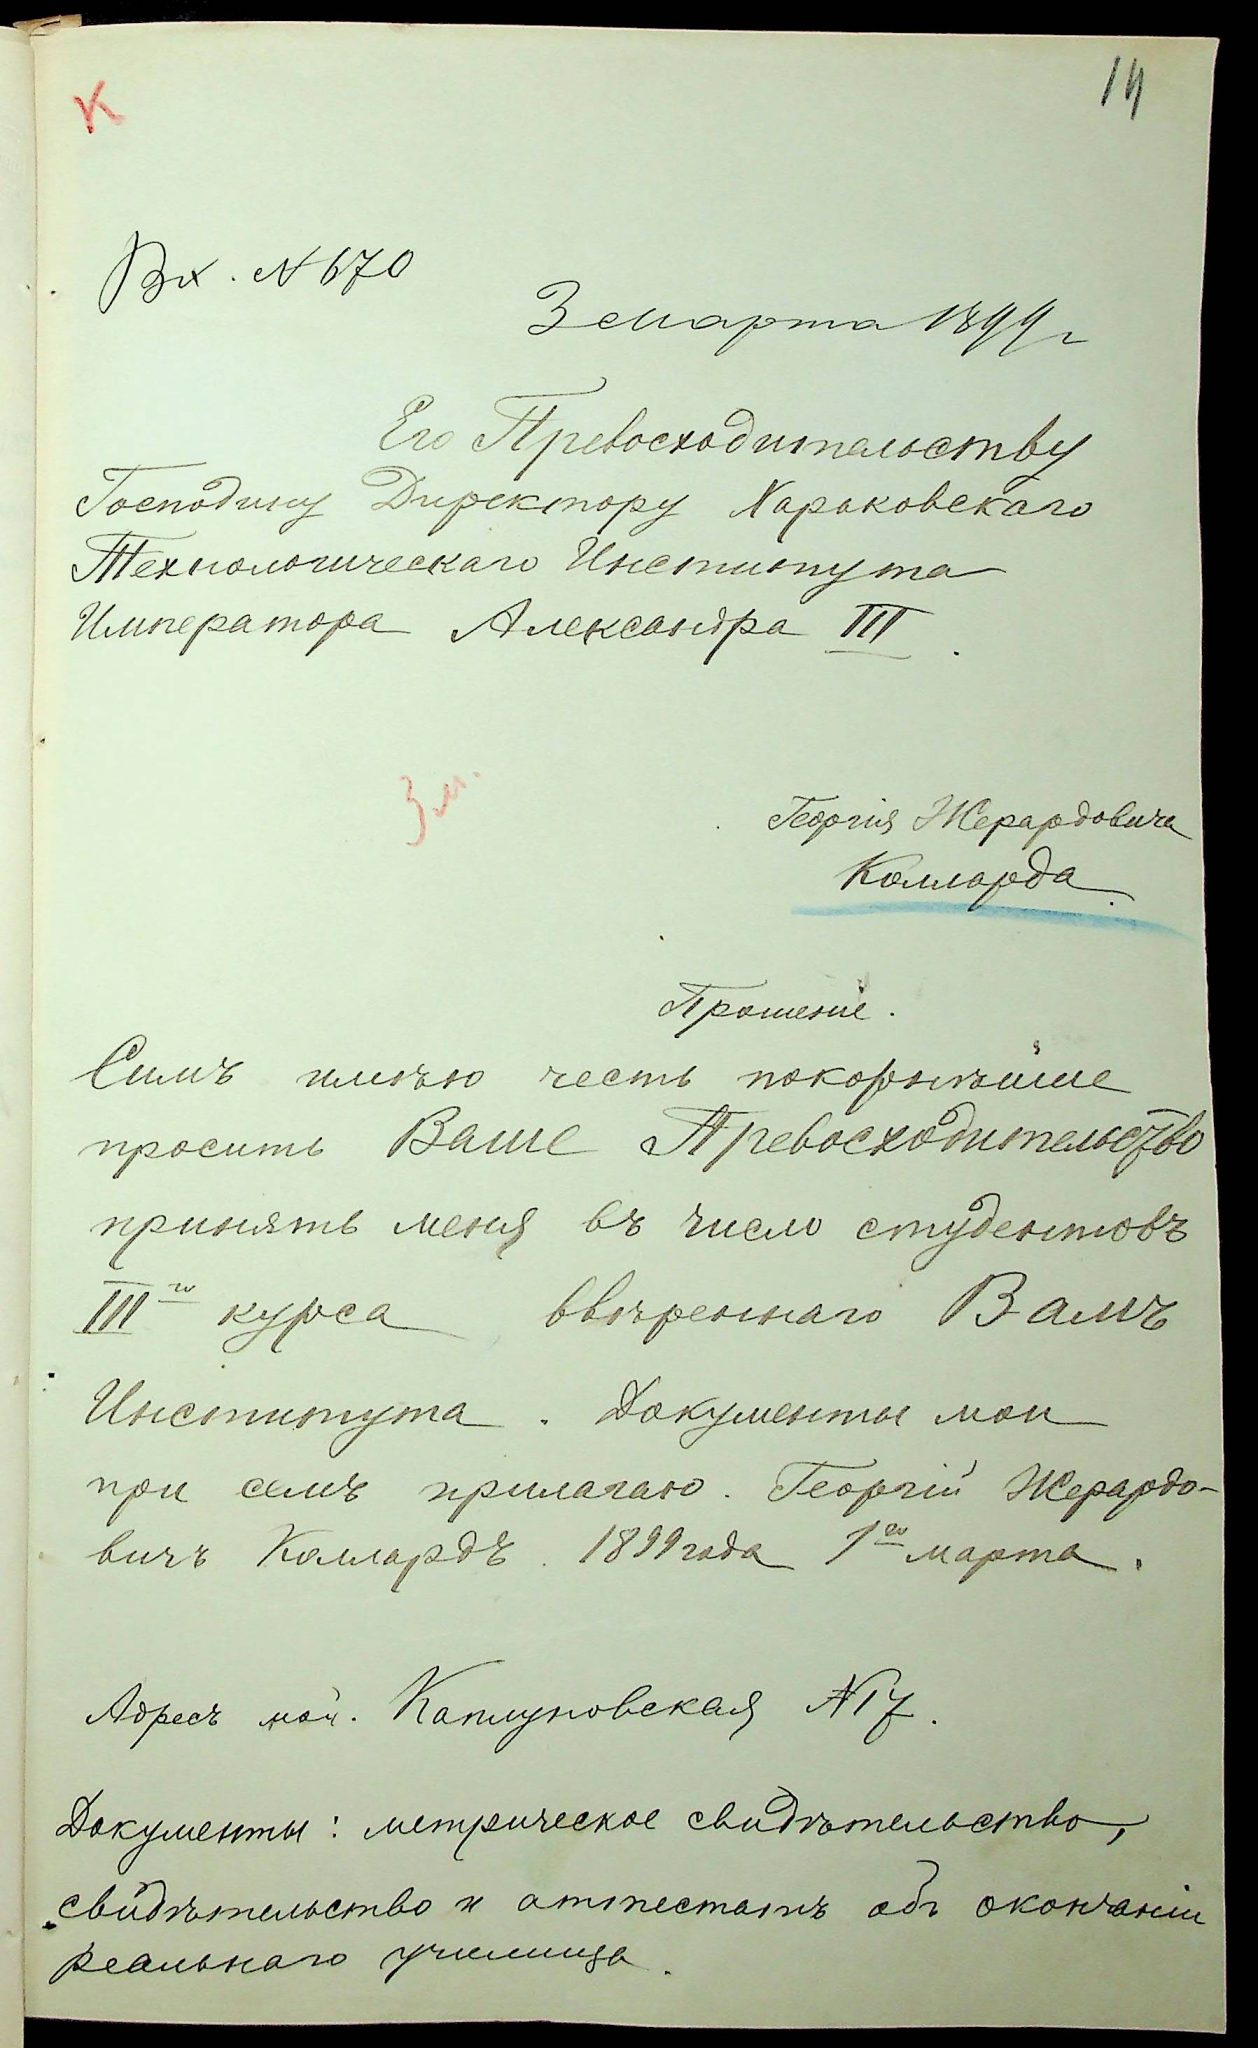 К
14
Вх. № 670
3 марта 1899 г
Его Превосходительству
Господину Директору Харьковскаго
Технологическаго Института
Императора Александра III.
3 м.
Георгія Жерардовича
Колларда.
Прошеніе.
Симъ имѣю честь покорнѣйше
просить Ваше Превосходительство
принять меня въ число студентовъ
III го курса ввѣреннаго Вамъ
Института. Документы мои
при семъ прилагаю. Георгій Жерардо-
вичъ Коллардъ. 1899 года 1 го марта.
Адресъ мой. Каплуновская № 17.
Документы: метрическое свидѣтельство,
свидѣтельство и аттестатъ объ окончаніи
реальнаго училища.